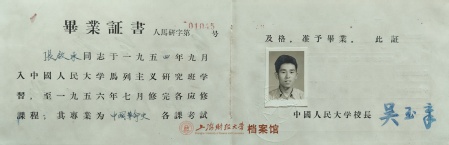 畢業証書
人馬研字第 01045 号
張啟承同志于一九五四年九月
入中國人民大學馬列主义研究班学
習，至一九五六年七月修完各应修
課程；其專業为中國革命史 各課考試
及格，准予畢業。此証
中國人民大學校長 吴玉章
上海财经大学 档案馆